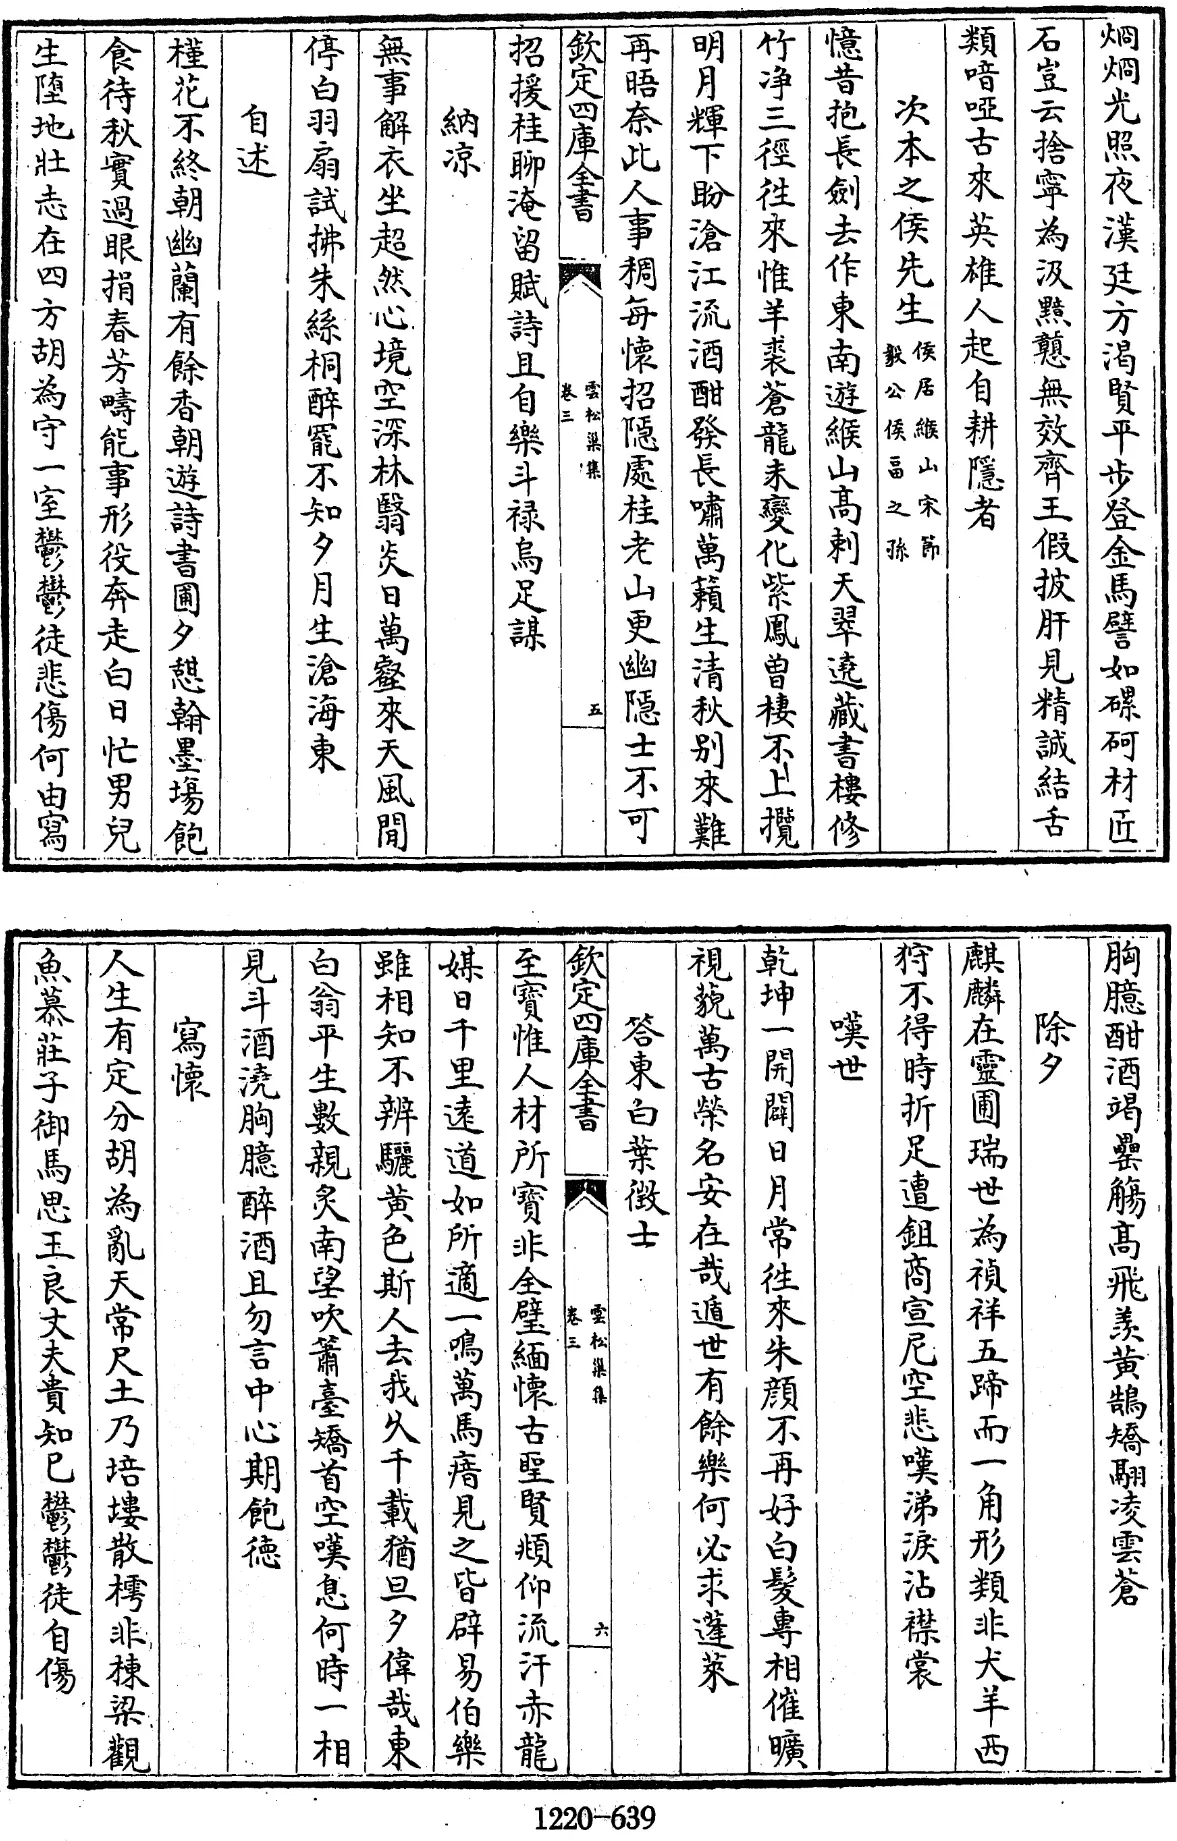 烱烱光照夜漢廷方渴賢平步登金馬譬如磥砢材匠
石豈云捨寧為汲黯戇無效齊王假披肝見精誠結舌
類喑啞古來英雄人起自耕隱者
次本之侯先生侯居緱山宋節
毅公侯畐之孫
憶昔抱長劍去作東南遊緱山髙刺天翠遶藏書樓修
竹净三徑往來惟羊裘蒼龍未變化紫鳳曾棲不上攬
明月輝下盼滄江流酒酣發長嘯萬籟生清秋别來難
再晤奈此人事稠每懷招隱處桂老山更幽隱士不可
欽定四庫全書
雲松巢集
卷三
五
招援桂聊淹留賦詩且自樂斗禄烏足謀
納凉
無事解衣坐超然心境空深林翳炎日萬壑來天風閒
停白羽扇試拂朱絲桐醉罷不知夕月生滄海東
自述
槿花不終朝幽蘭有餘香朝遊詩書圃夕憇翰墨塲飽
食待秋實過眼捐春芳疇能事形役奔走白日忙男兒
生墮地壯志在四方胡為守一室鬱鬱徒悲傷何由寫
胸臆酣酒竭罍觴髙飛羨黄鵠矯翮凌雲蒼
除夕
麒麟在靈囿瑞世為禎祥五蹄而一角形類非犬羊西
狩不得時折足遭鉏商宣尼空悲嘆涕淚沾襟裳
嘆世
乾坤一開闢日月常往來朱顔不再好白髮專相催曠
視藐萬古榮名安在哉遁世有餘樂何必求蓬萊
答東白葉徴士
欽定四庫全書
雲松巢集
卷三
六
至寳惟人材所寳非全璧緬懷古聖賢頫仰流汗赤龍
媒日千里遠道如所適一鳴萬馬瘖見之皆辟易伯樂
雖相知不辨驪黄色斯人去我久千載猶旦夕偉哉東
白翁平生數親炙南望吹簫臺矯首空嘆息何時一相
見斗酒澆胸臆醉酒且勿言中心期飽徳
寫懷
人生有定分胡為亂天常尺土乃培塿散樗非棟梁觀
魚慕莊子御馬思王良丈夫貴知已鬱鬱徒自傷
1220-639